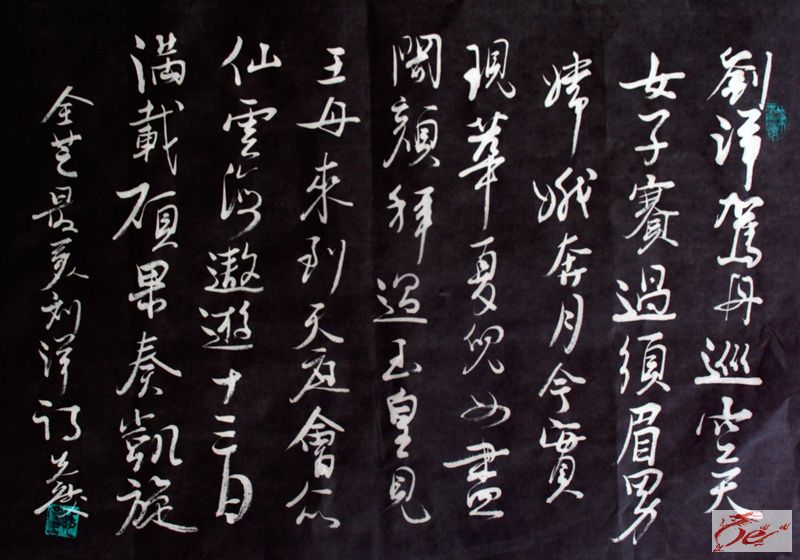 劉洋駕舟巡空天
女子賽過須眉男
嫦娥奔月今實
現華夏兒女盡
開顏拜過玉皇見
王母來到天庭會众
仙雲海遨遊十三日
滿載碩果奏凱旋
刘洋诗